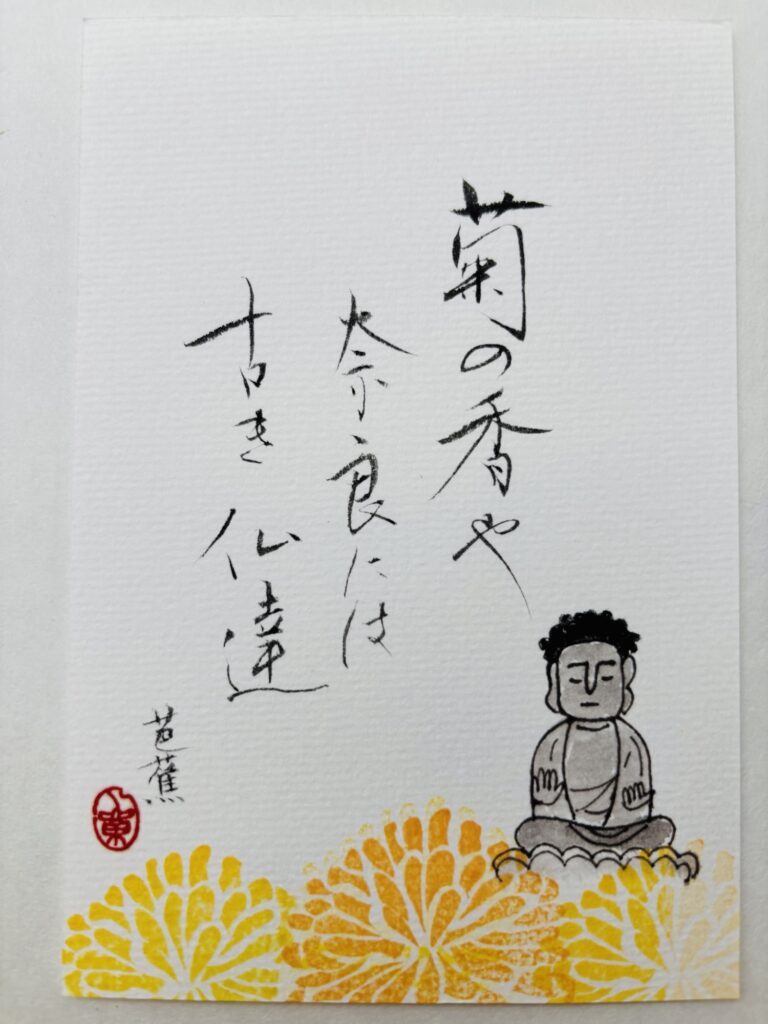 菊の香や
奈良には
古き仏達
芭蕉